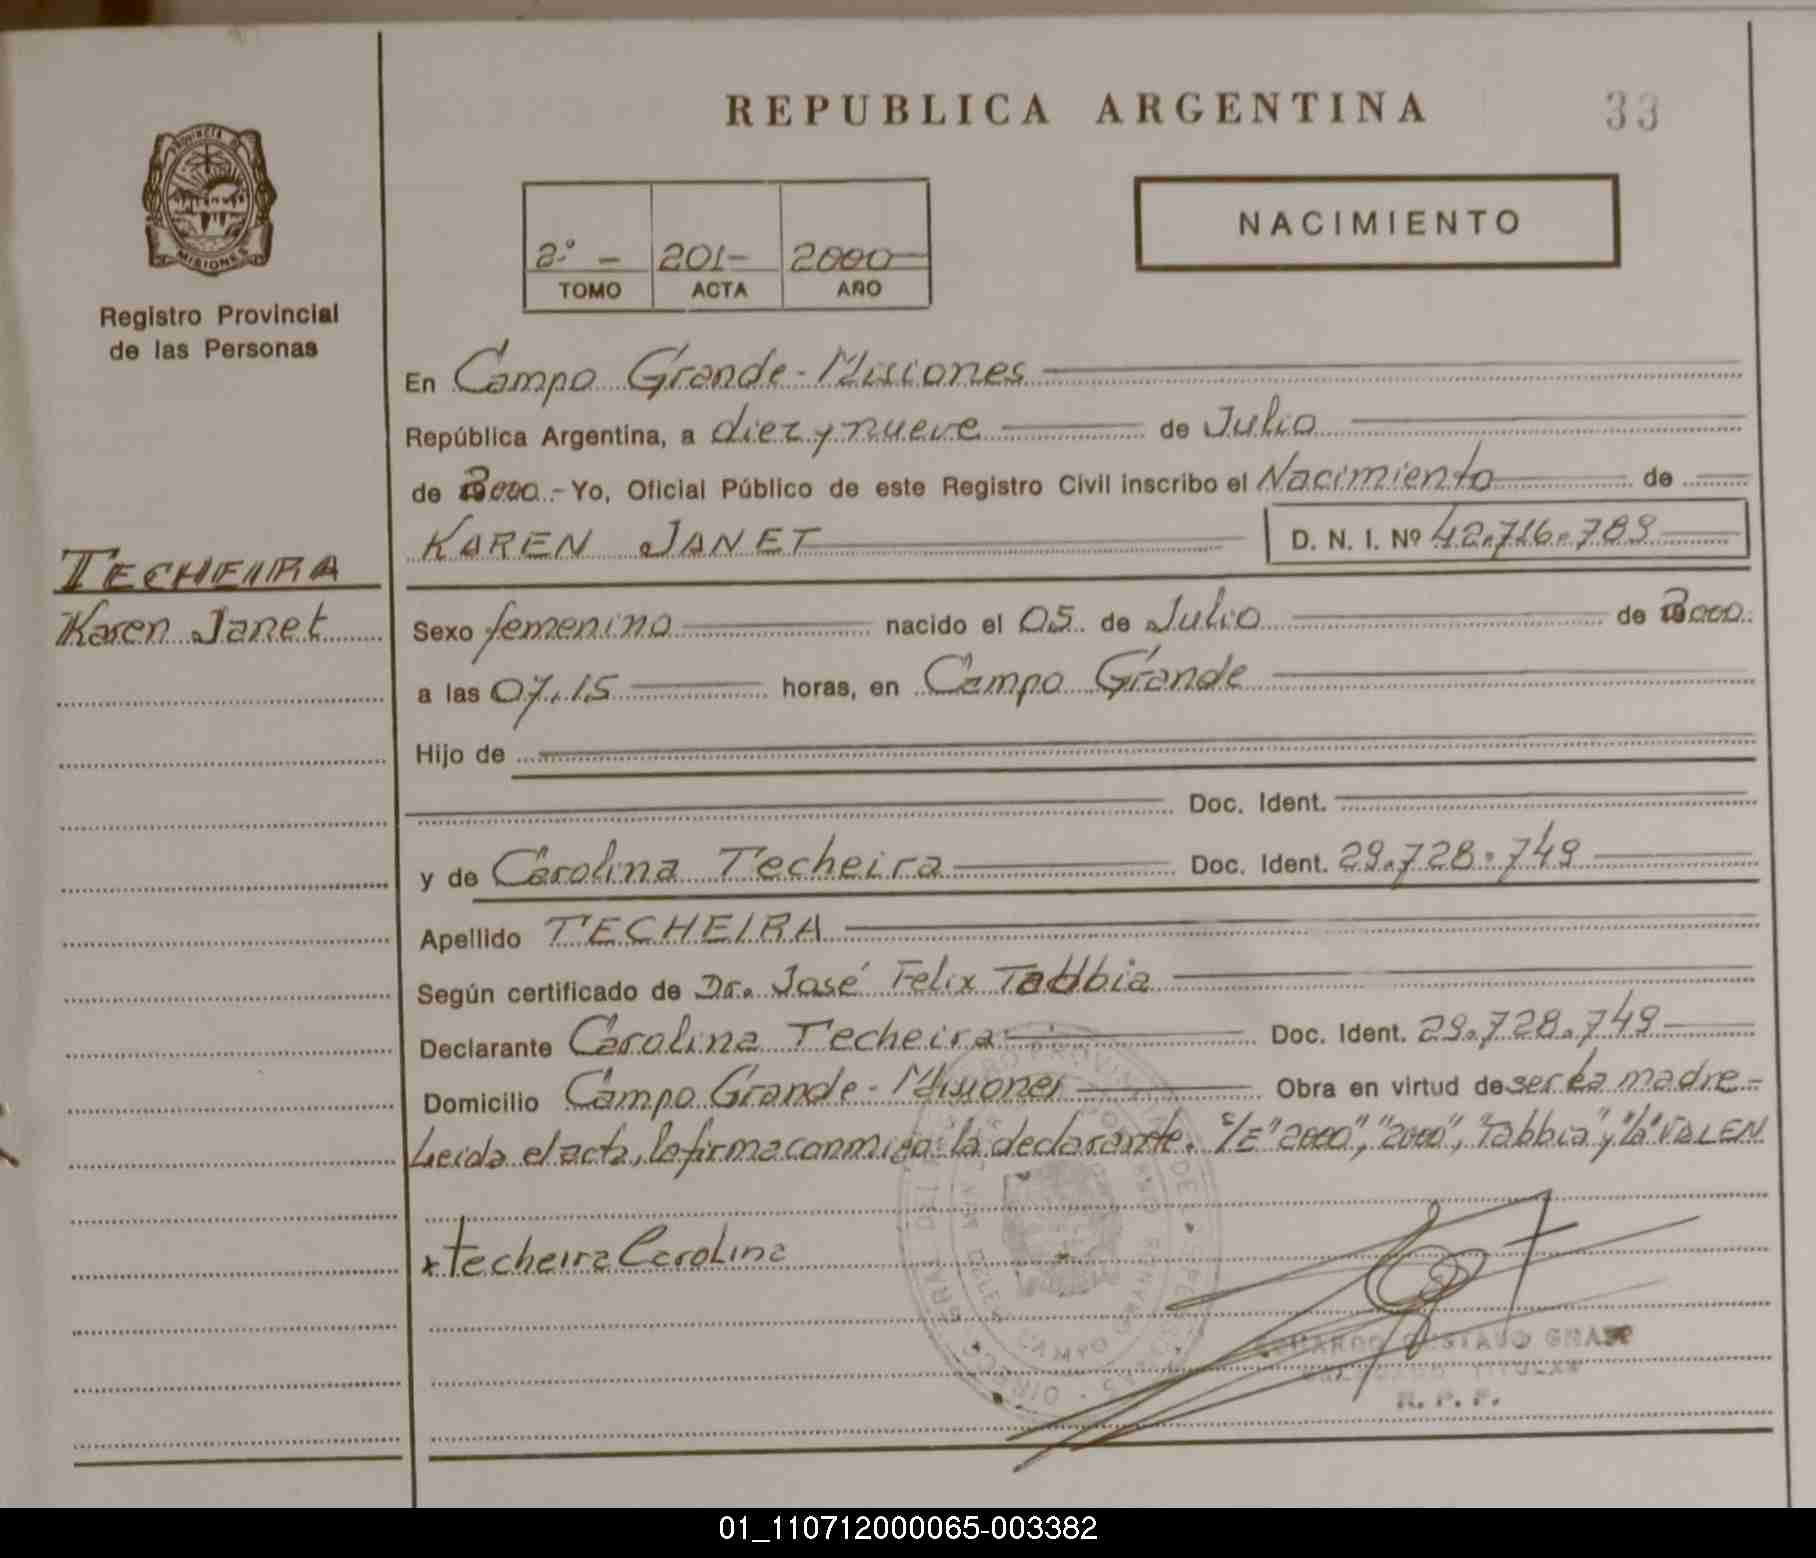 REPUBLICA ARGENTINA
33
PROVINCIA DE
MISIONES
Registro Provincial
de las Personas
NACIMIENTO
2º - 201- 2000
TOMO ACTA AÑO
En Campo Grande - Misiones
República Argentina, a diez y nueve de Julio
de 2000 - Yo, Oficial Público de este Registro Civil inscribo el Nacimiento de
KAREN JANET D. N. I. Nº 42.716.789
TECHEIRA
Karen Janet
Sexo femenino nacido el 05 de Julio de 2000
a las 07.15 horas, en Campo Grande
Hijo de
Doc. Ident.
y de Carolina Techeira Doc. Ident. 29.728.749
Apellido TECHEIRA
Según certificado de Dr. José Felix Tabbia
Declarante Carolina Techeira Doc. Ident. 29.728.749
Domicilio Campo Grande - Misiones Obra en virtud de ser la madre -
Leida el acta, la firma conmigo la declarante. S/E "2000", "2000", "Tabbia" y "la" VALEN
x Techeira Carolina
GUSTAVO
TITULAR
R. P. P.
01_110712000065-003382